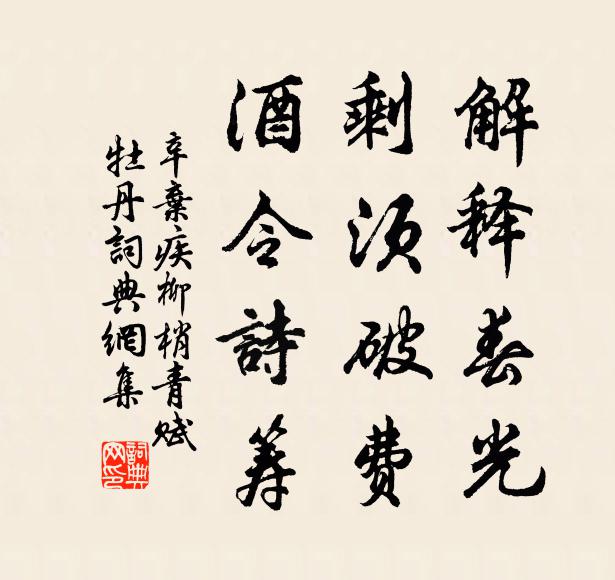 解释春光
剩须破费
酒令詩筹
辛棄疾柳梢青赋
牡丹詞典網集
詞典
网印